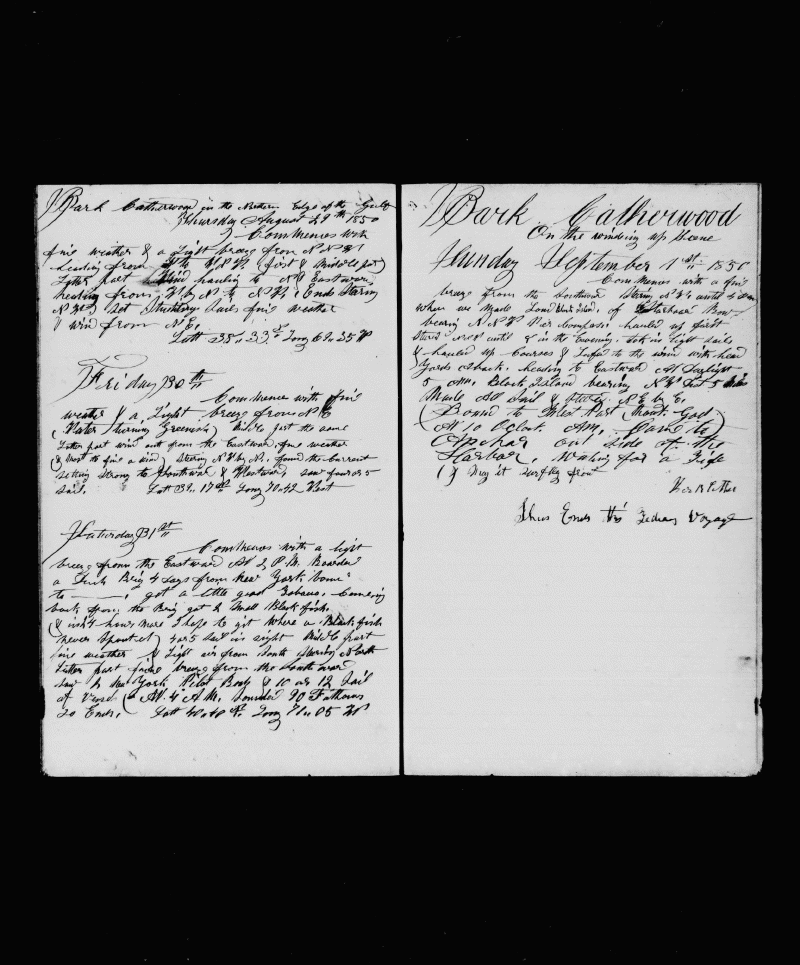 Bark Catherwood in the Northern Edge of the Gulf
Thursday August 29th 1850
Commences with
fine weather & a Light breeze from N N W
heading from to N N W (first & Middle part)
Later part Wind hauling to N & Eastward,
heading from W by N to N W. Ends Staring
N W set Studding Sails fine weather
& wind from N E.
Latt 38.. 39 Long 69.. 35 W
Friday 30th
Commences with fine
weather & a Light breeze from N E
(Water turning Greenish) Middle part the same
Latter part wind out from the Eastward, fine weather
(& that is fine a wind) Stering N W by N. found the Current
setting strong to Southward & Westward saw four or 5
Sail. Latt 39.. 17 Long 70..42 West
Saturday 31st
Commences with a light
breeze from the Eastward At 2 P.M. Boarded
a Brig 4 days from New York bound
to ——, got a little good Tobacco. Comeing
back from the Brig got 2 Small Black fish.
& in 24 hours more I hope to git where a Black fish
never Spouted) 4 or 5 Sail in sight Middle part
fine weather & Light air from South Stering North
Latter part fine breeze from the Southward
Saw a New York Pilot Boat & 10 or 12 Sail
of Vessels (At 4 A.M. Sounded 20 Fathoms
So Ends. Latt 40..40 N. Long 71.. 05 W
Bark Catherwood
On the winding up Scene
Sunday September 1st 1850
Commences with a fine
breeze from the Southward Stering N W until 4 P.M.
when we Made Land Block Island, of Starboard Bow
bearing N N W Per Compass. hauled up first
Stered until 8 in the Evening. took in light sails
& hauled up Courses & Luffed to the wind with head
Yards aback. heading to Eastward At Daylight
5 Am. Block Island bearing N W Dist 5 Miles
Made All Sail & Stered N E by E.
(Bound to Port (thank God)
At 10 Oclock AM, Came to
Anchor out side of the
Harbor, Waiting for a Tide
(& May it surfly from

Thus Ends this Tedious Voyage